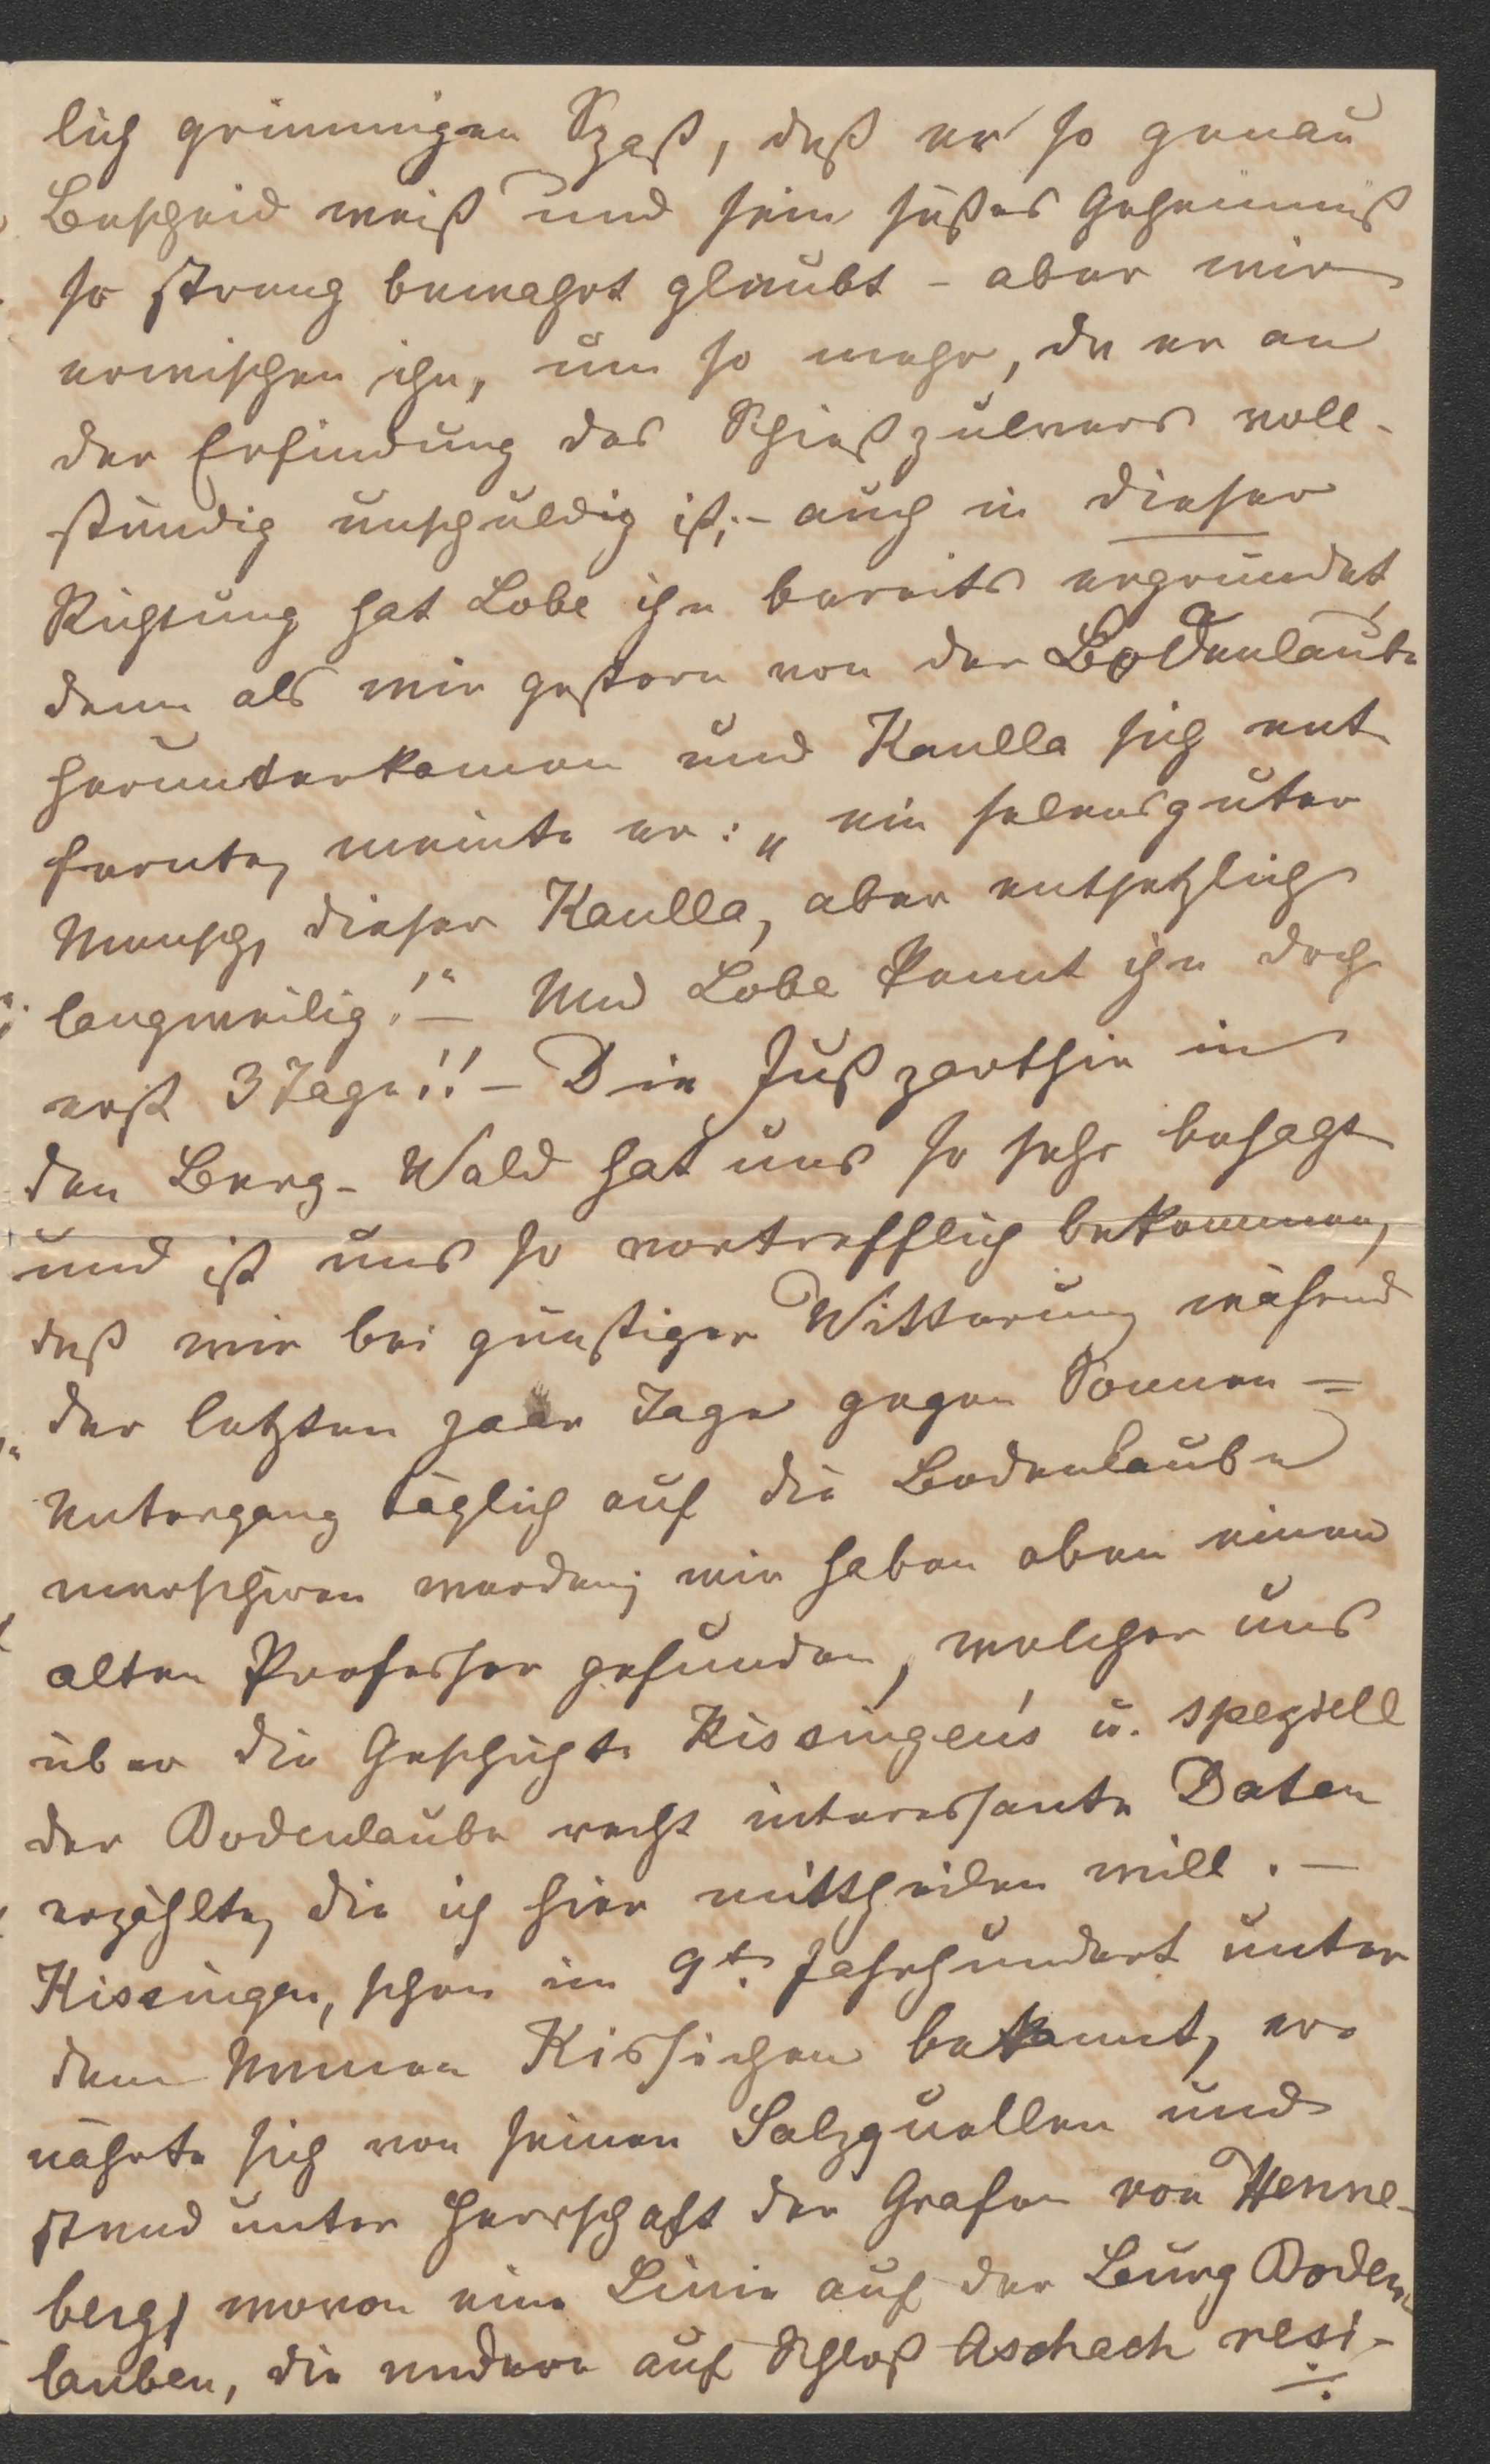 lich grimmigen Spaß, daß er so genau
Bescheid weiß und sein süßes Geheimniß
so streng bewahrt glaubt – aber wir
erwischen ihn, um so mehr, da er an
der Erfindung des Schießpulvers voll-
ständig unschuldig ist; – auch in dieser
Richtung hat Lobe ihn bereits ergründet,
denn als wir gestern von der Bodenlaube
herunterkamen und Kaulla sich ent
fernte, meinte er: „ein seelensguter
Mensch, dieser Kaulla, aber entsetzlich
langweilig!“ – Und Lobe kennt ihn doch
erst 3 Tage!! – Die Fußparthie in
den Berg-Wald hat uns so sehr behagt
und ist uns so vortrefflich bekommen,
daß wir bei günstiger Witterung während
der letzten paar Tage gegen Sonnen=
Untergang täglich auf die Bodenlaube
marschiren werden; wir haben oben einen
alten Professor gefunden, welcher uns
über die Geschichte Kissingen's u. speziell
der Bodenlaube recht interessante Daten
erzählte, die ich hier mittheilen will. –
Kissingen, schon im 9t. Jahrhundert unter
dem Namen Kissichen bekannt, er-
nährte sich von seinen Salzquellen und
stand unter Herrschaft der Grafen von Henne-
berg, wovon eine Linie auf der Burg Boden-
lauben, die andere auf Schloß Aschach resi-